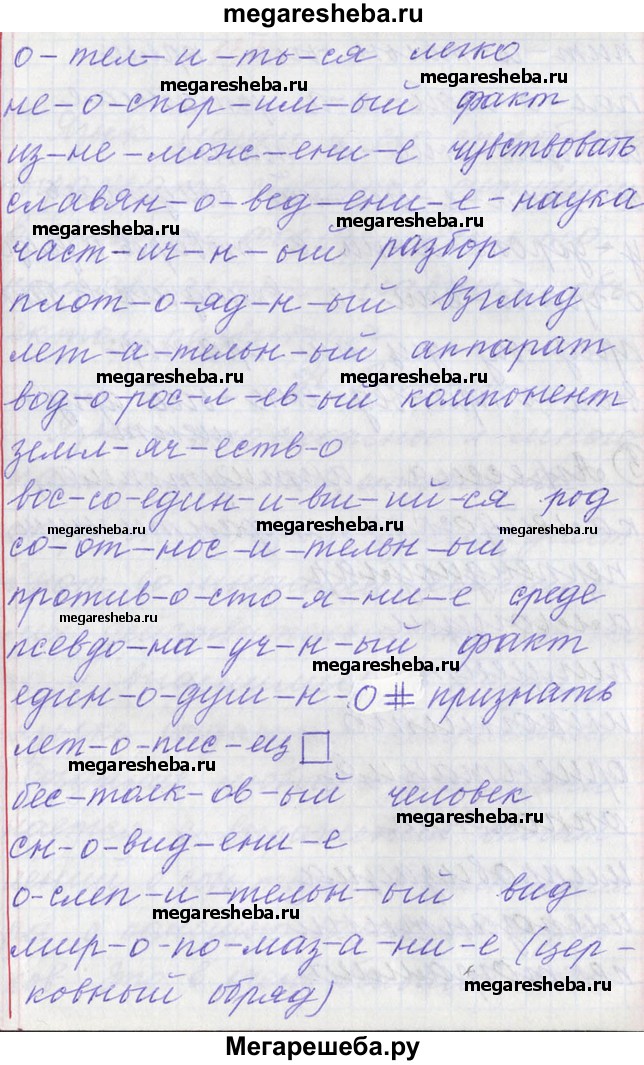 megaresheba.ru
о-тел-и-ть-ся легко
megaresheba.ru megaresheba.ru
не-о-спор-им-ый факт
из-не-мож-ени-е чувствовать
славян-о-вед-ени-е-наука
megaresheba.ru megaresheba.ru
част-ич-н-ый разбор
плот-о-яд-н-ый взгляд
лет-а-тельн-ый аппарат
megaresheba.ru megaresheba.ru
вод-о-рос-л-ев-ый компонент
земл-яч-еств-о
вос-со-един-и-вш-ий-ся род
megaresheba.ru megaresheba.ru megaresheba.ru
со-от-нос-и-тельн-ый
против-о-сто-я-ни-е среде
megaresheba.ru
псевдо-на-уч-н-ый факт
megaresheba.ru
един-о-душ-н-о # признать
лет-о-пис-ец
megaresheba.ru
бес-толк-ов-ый человек
megaresheba.ru
сн-о-вид-ени-е
о-слеп-и-тельн-ый вид
megaresheba.ru
мир-о-по-маз-а-ни-е (цер-
ковный обряд)
megaresheba.ru
Мегарешеба.ру